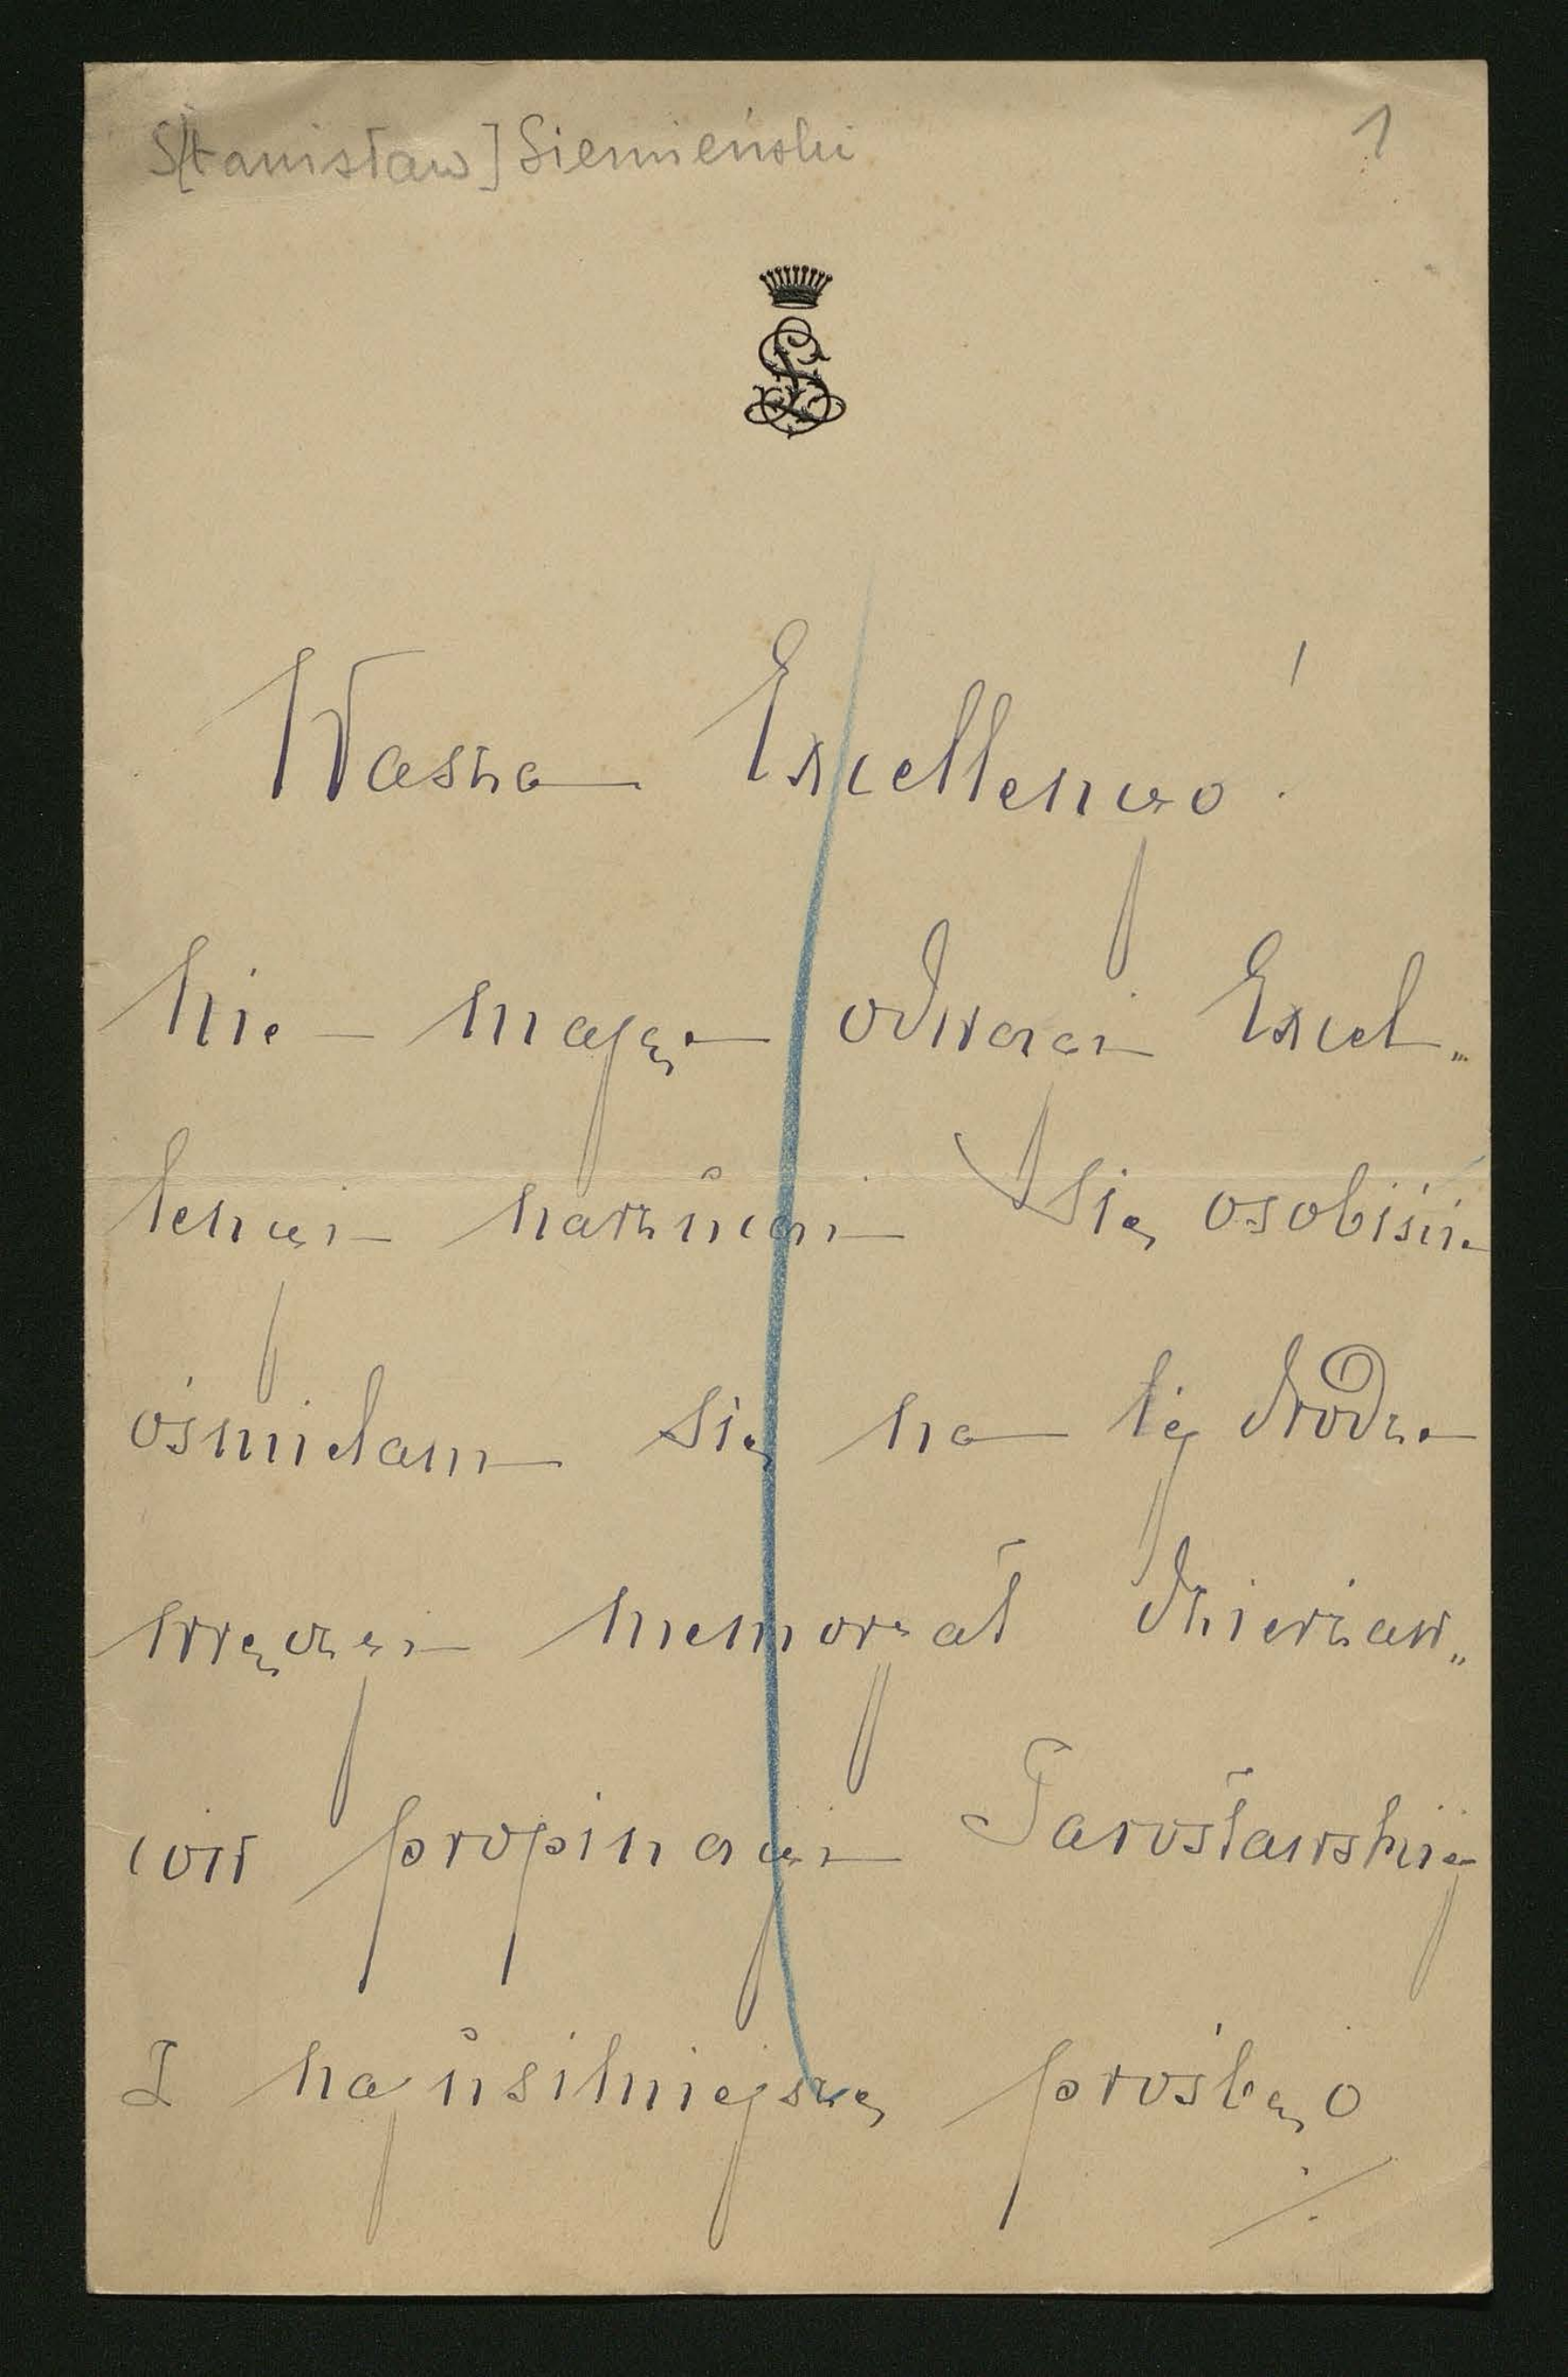 S[tanisław] Siemieński
1
Wasza Excellencyo!
Nie mając odwagi Excel„
lencyi narzucać się osobiście
ośmielam się na tej drodze
wręczyć memoryał dzierżaw„
ców propinacyi Jarosławskiej
Z najusilniejszą prośbą o